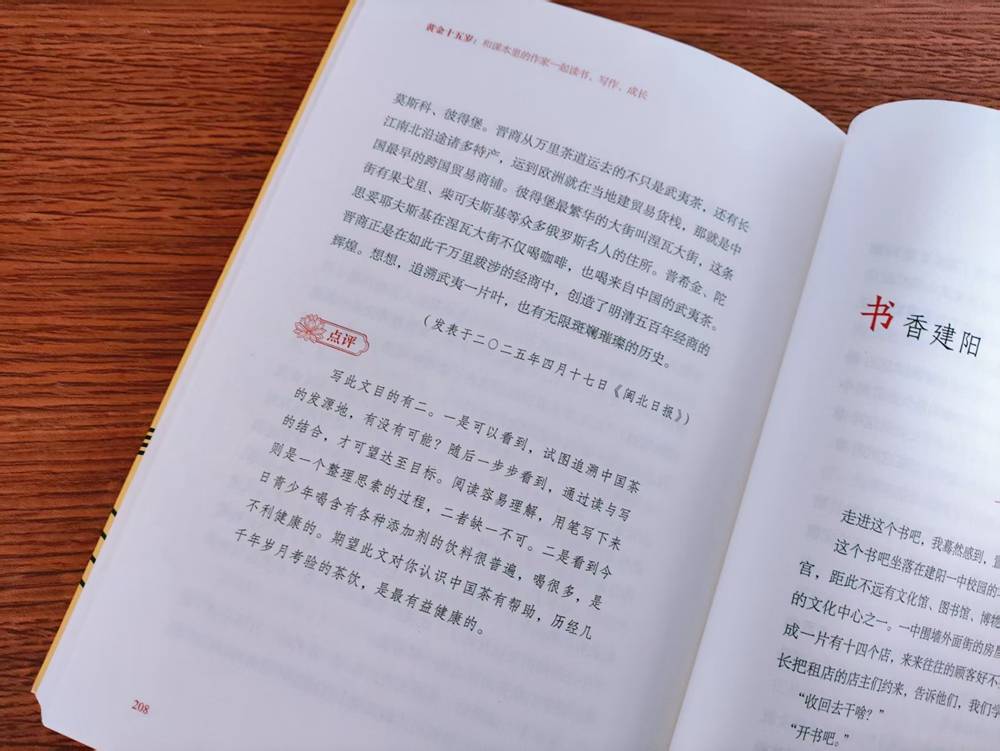 黄金十五岁：和课本里的作家一起读书、写作、成长
莫斯科、彼得堡。晋商从万里茶道运去的不只是武夷茶，还有长
江南北沿途诸多特产，运到欧洲就在当地建贸易货栈，那就是中
国最早的跨国贸易商铺。彼得堡最繁华的大街叫涅瓦大街，这条
街有果戈里、柴可夫斯基等众多俄罗斯名人的住所。普希金、陀
思妥耶夫斯基在涅瓦大街不仅喝咖啡，也喝来自中国的武夷茶。
晋商正是在如此千万里跋涉的经商中，创造了明清五百年经商的
辉煌。想想，追溯武夷一片叶，也有无限斑斓璀璨的历史。
（发表于二〇二五年四月十七日《闽北日报》）
点评
写此文目的有二。一是可以看到，试图追溯中国茶
的发源地，有没有可能？随后一步步看到，通过读与写
的结合，才可望达至目标。阅读容易理解，用笔写下来
则是一个整理思索的过程，二者缺一不可。二是看到今
日青少年喝含有各种添加剂的饮料很普遍，喝很多，是
不利健康的。期望此文对你认识中国茶有帮助，历经几
千年岁月考验的茶饮，是最有益健康的。
208
书香建阳
走进这个书吧，我蓦然感到，
这个书吧坐落在建阳一中校园的
宫，距此不远有文化馆、图书馆、博物
的文化中心之一。一中围墙外面街的房屋
成一片有十四个店，来来往往的顾客好不
长把租店的店主们约来，告诉他们，我们学
“收回去干啥？”
“开书吧。”